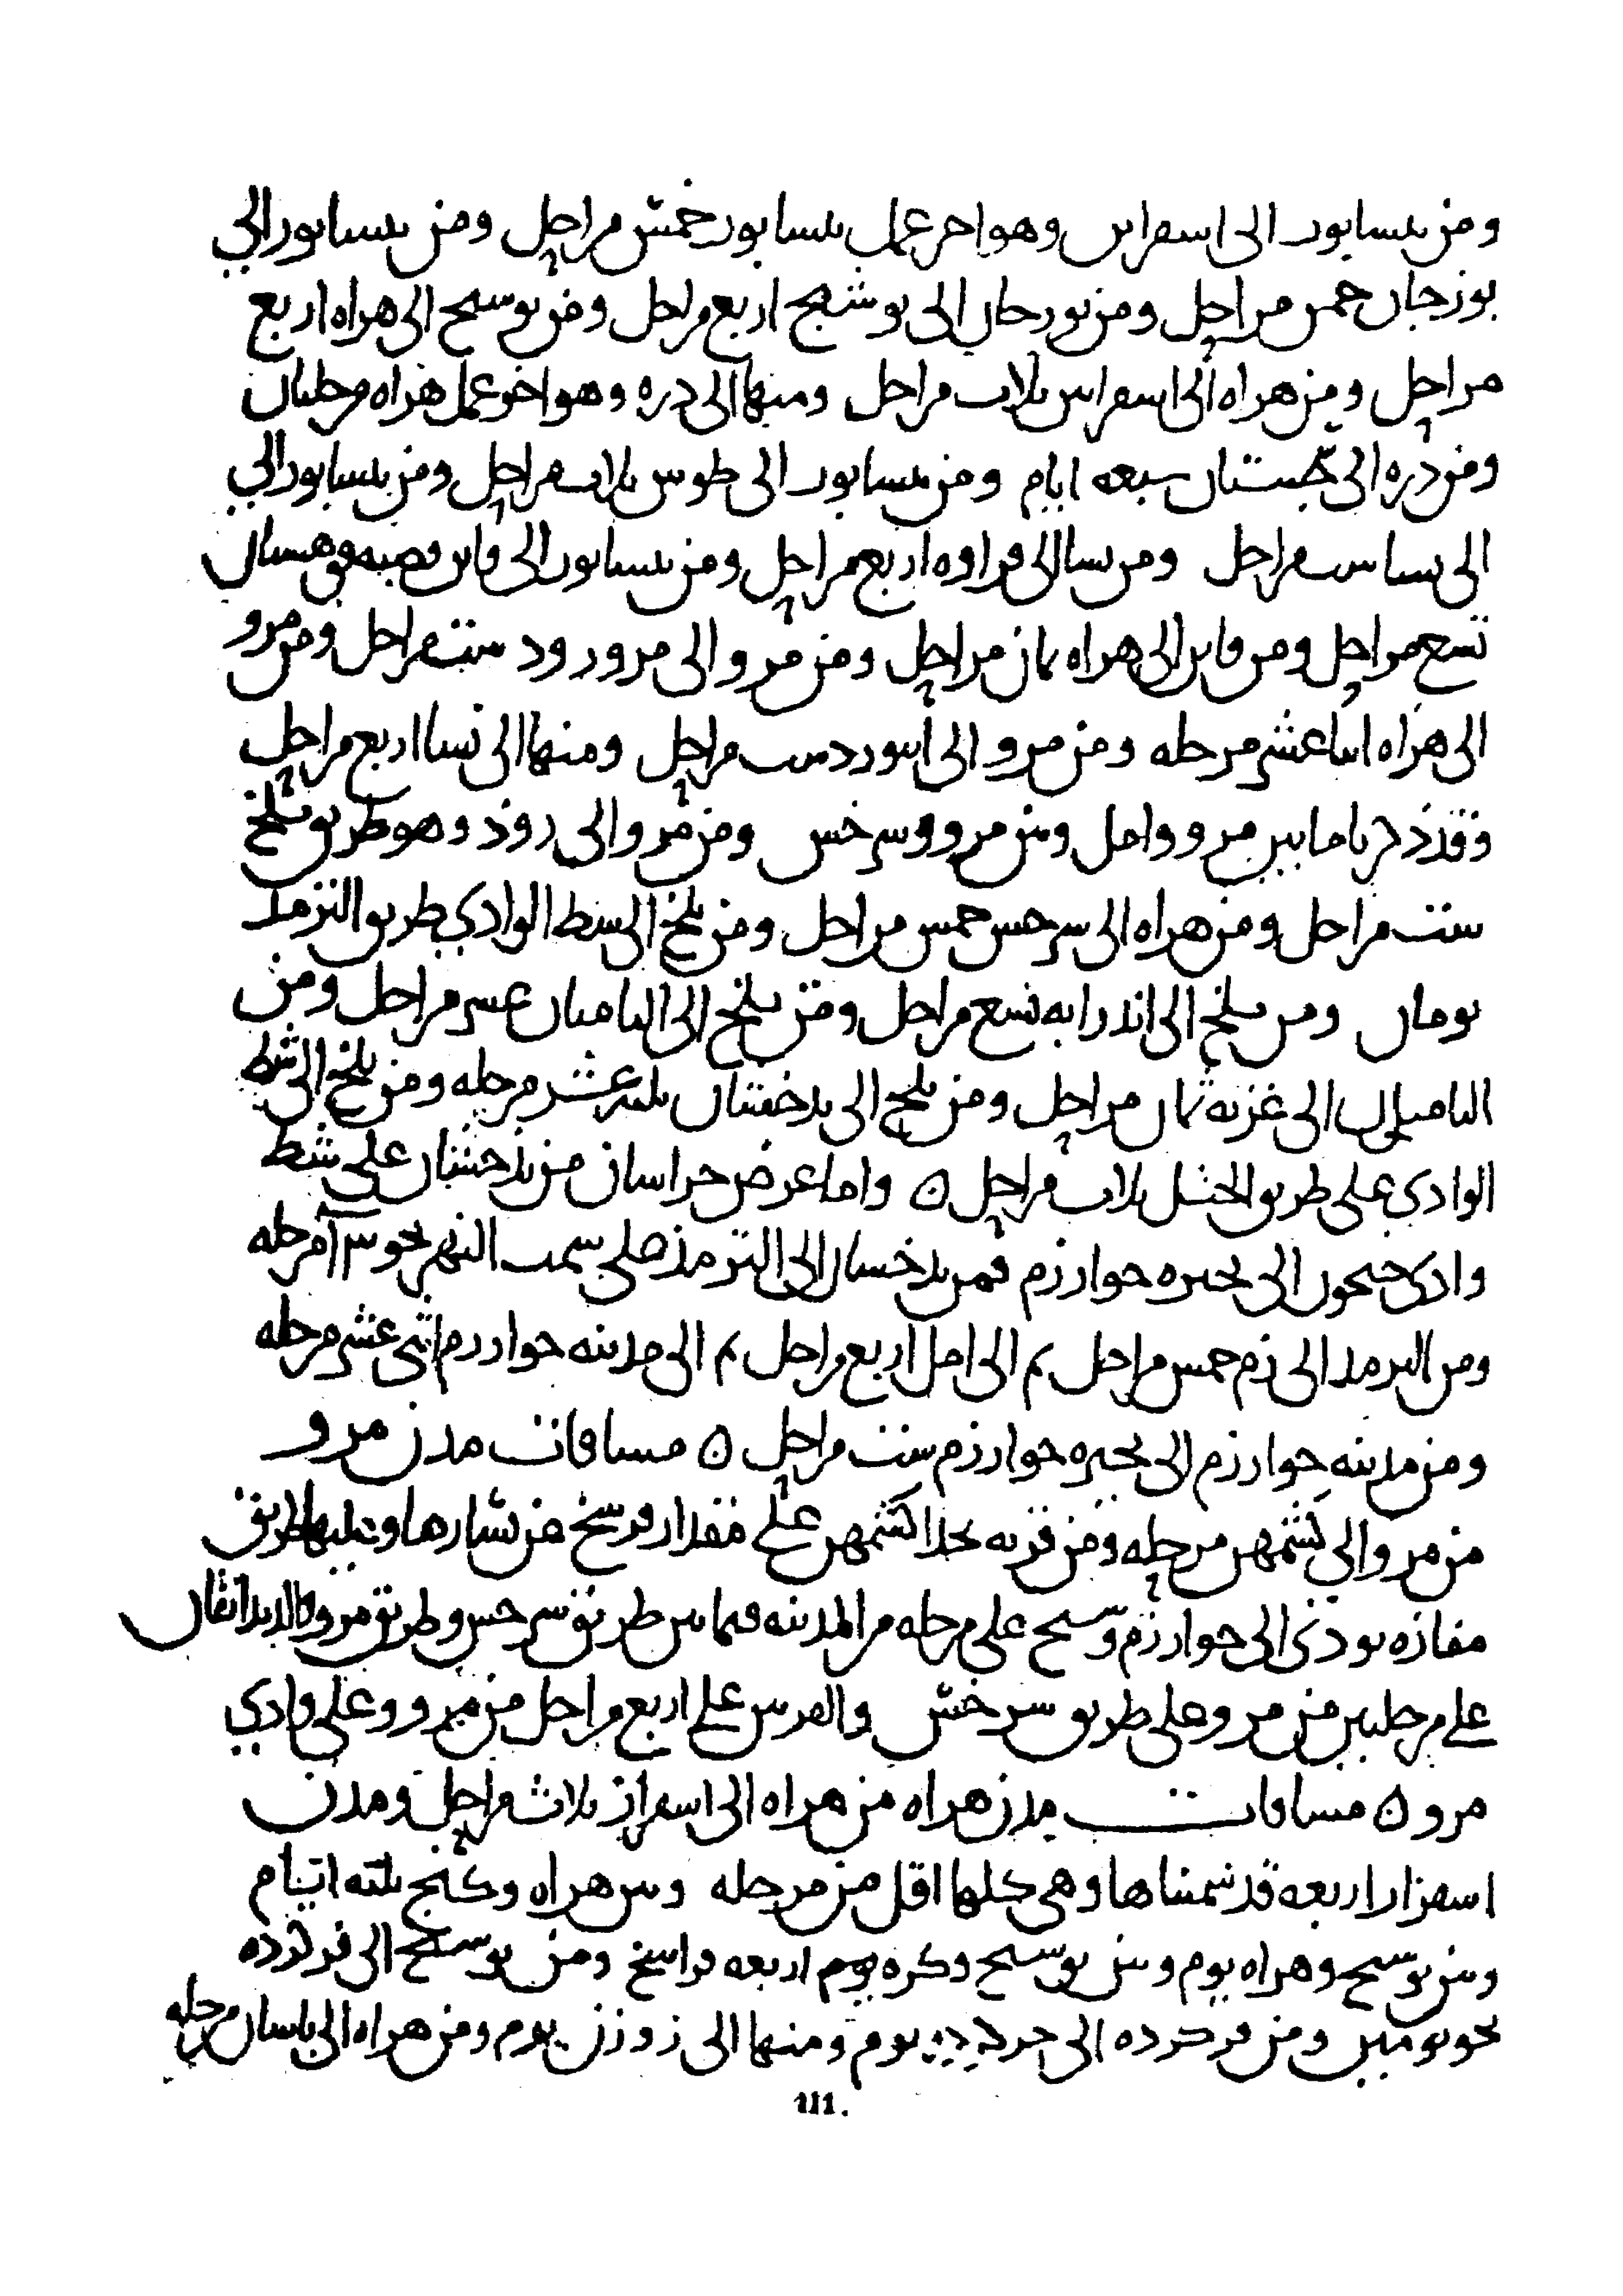 ومن نيسابور الى اسفراين وهو اخر عمل نيسابور خمس مراحل ومن نيسابور الي
بوزجان خمس مراحل ومن بوزجان الى بوشنج اربع مراحل ومن بوسنج الى هراه اربع
مراحل ومن هراه الى اسفراين ثلاث مراحل ومنها الى دره وهو اخر عمل هراه مرحلتان
ومن دره الى سجستان سبعه ايام ومن نيسابور الى طوس ثلاث مراحل ومن نيسابور الي
الى نسا ست مراحل ومن نسا الى فراوه اربع مراحل ومن نيسابور الى قاين قصبه قوهستان
تسع مراحل ومن قاين الى هراه ثمان مراحل ومن مرو الى مرورود ست مراحل ومن مرو
الى هراه اثنا عشر مرحله ومن مرو الى ابيورد ست مراحل ومنها الى نسا اربع مراحل
وقد ذكرنا ما بين مرو وامل وبين مرو وسرخس ومن مرو الى روذ وهو طريق بلخ
ست مراحل ومن هراه الى سرخس خمس مراحل ومن بلخ الى شط الوادي طريق الترمذ
يومان ومن بلخ الى اندرابه تسع مراحل ومن بلخ الى الباميان عشر مراحل ومن
الباميان الى غزنه ثمان مراحل ومن بلخ الى بدخشان ثلثه عشر مرحله ومن بلخ الى شط
الوادي على طريق الختل ثلاث مراحل ن واما عرض خراسان من بذخشان على شط
وادى جيحون الى بحيره خوارزم فمن بدخشان الى الترمذ على سمت النهر نحو ١٣ مرحله
ومن الترمذ الى زم خمس مراحل ثم الى امل اربع مراحل ثم الى مدينه خوارزم اثنى عشر مرحله
ومن مدينه خوارزم الى بحيره خوارزم ست مراحل ن مسافات مدن مرو
من مرو الي كشميهن مرحله ومن قريه بحذا كشميهن على مقدار فرسخ من يسارها وعليها طريق
مفازه تودى الى خوارزم وسنج على مرحله من المدينه فيما بين طريق سرخس وطريق مرو والدندانقان
على مرحلتين من مرو على طريق سرخس والقرينين على اربع مراحل من مرو وعلى وادي
مرو ن مسافات مدن هراه من هراه الى اسفزار ثلاث مراحل ومدن
اسفزار اربعه قد سميناها وهى كلها اقل من مرحله وبين هراه وكنج ثلثه ايام
وبين بوسنج وهراه يوم وبين بوسنج وكره يوم اربعه فراسخ ومن بوسنج الى فركرده
نحو يومين ومن فركرده الى يوم ومنها الى زوزن يوم ومن هراه الى باسان مرحله
111.